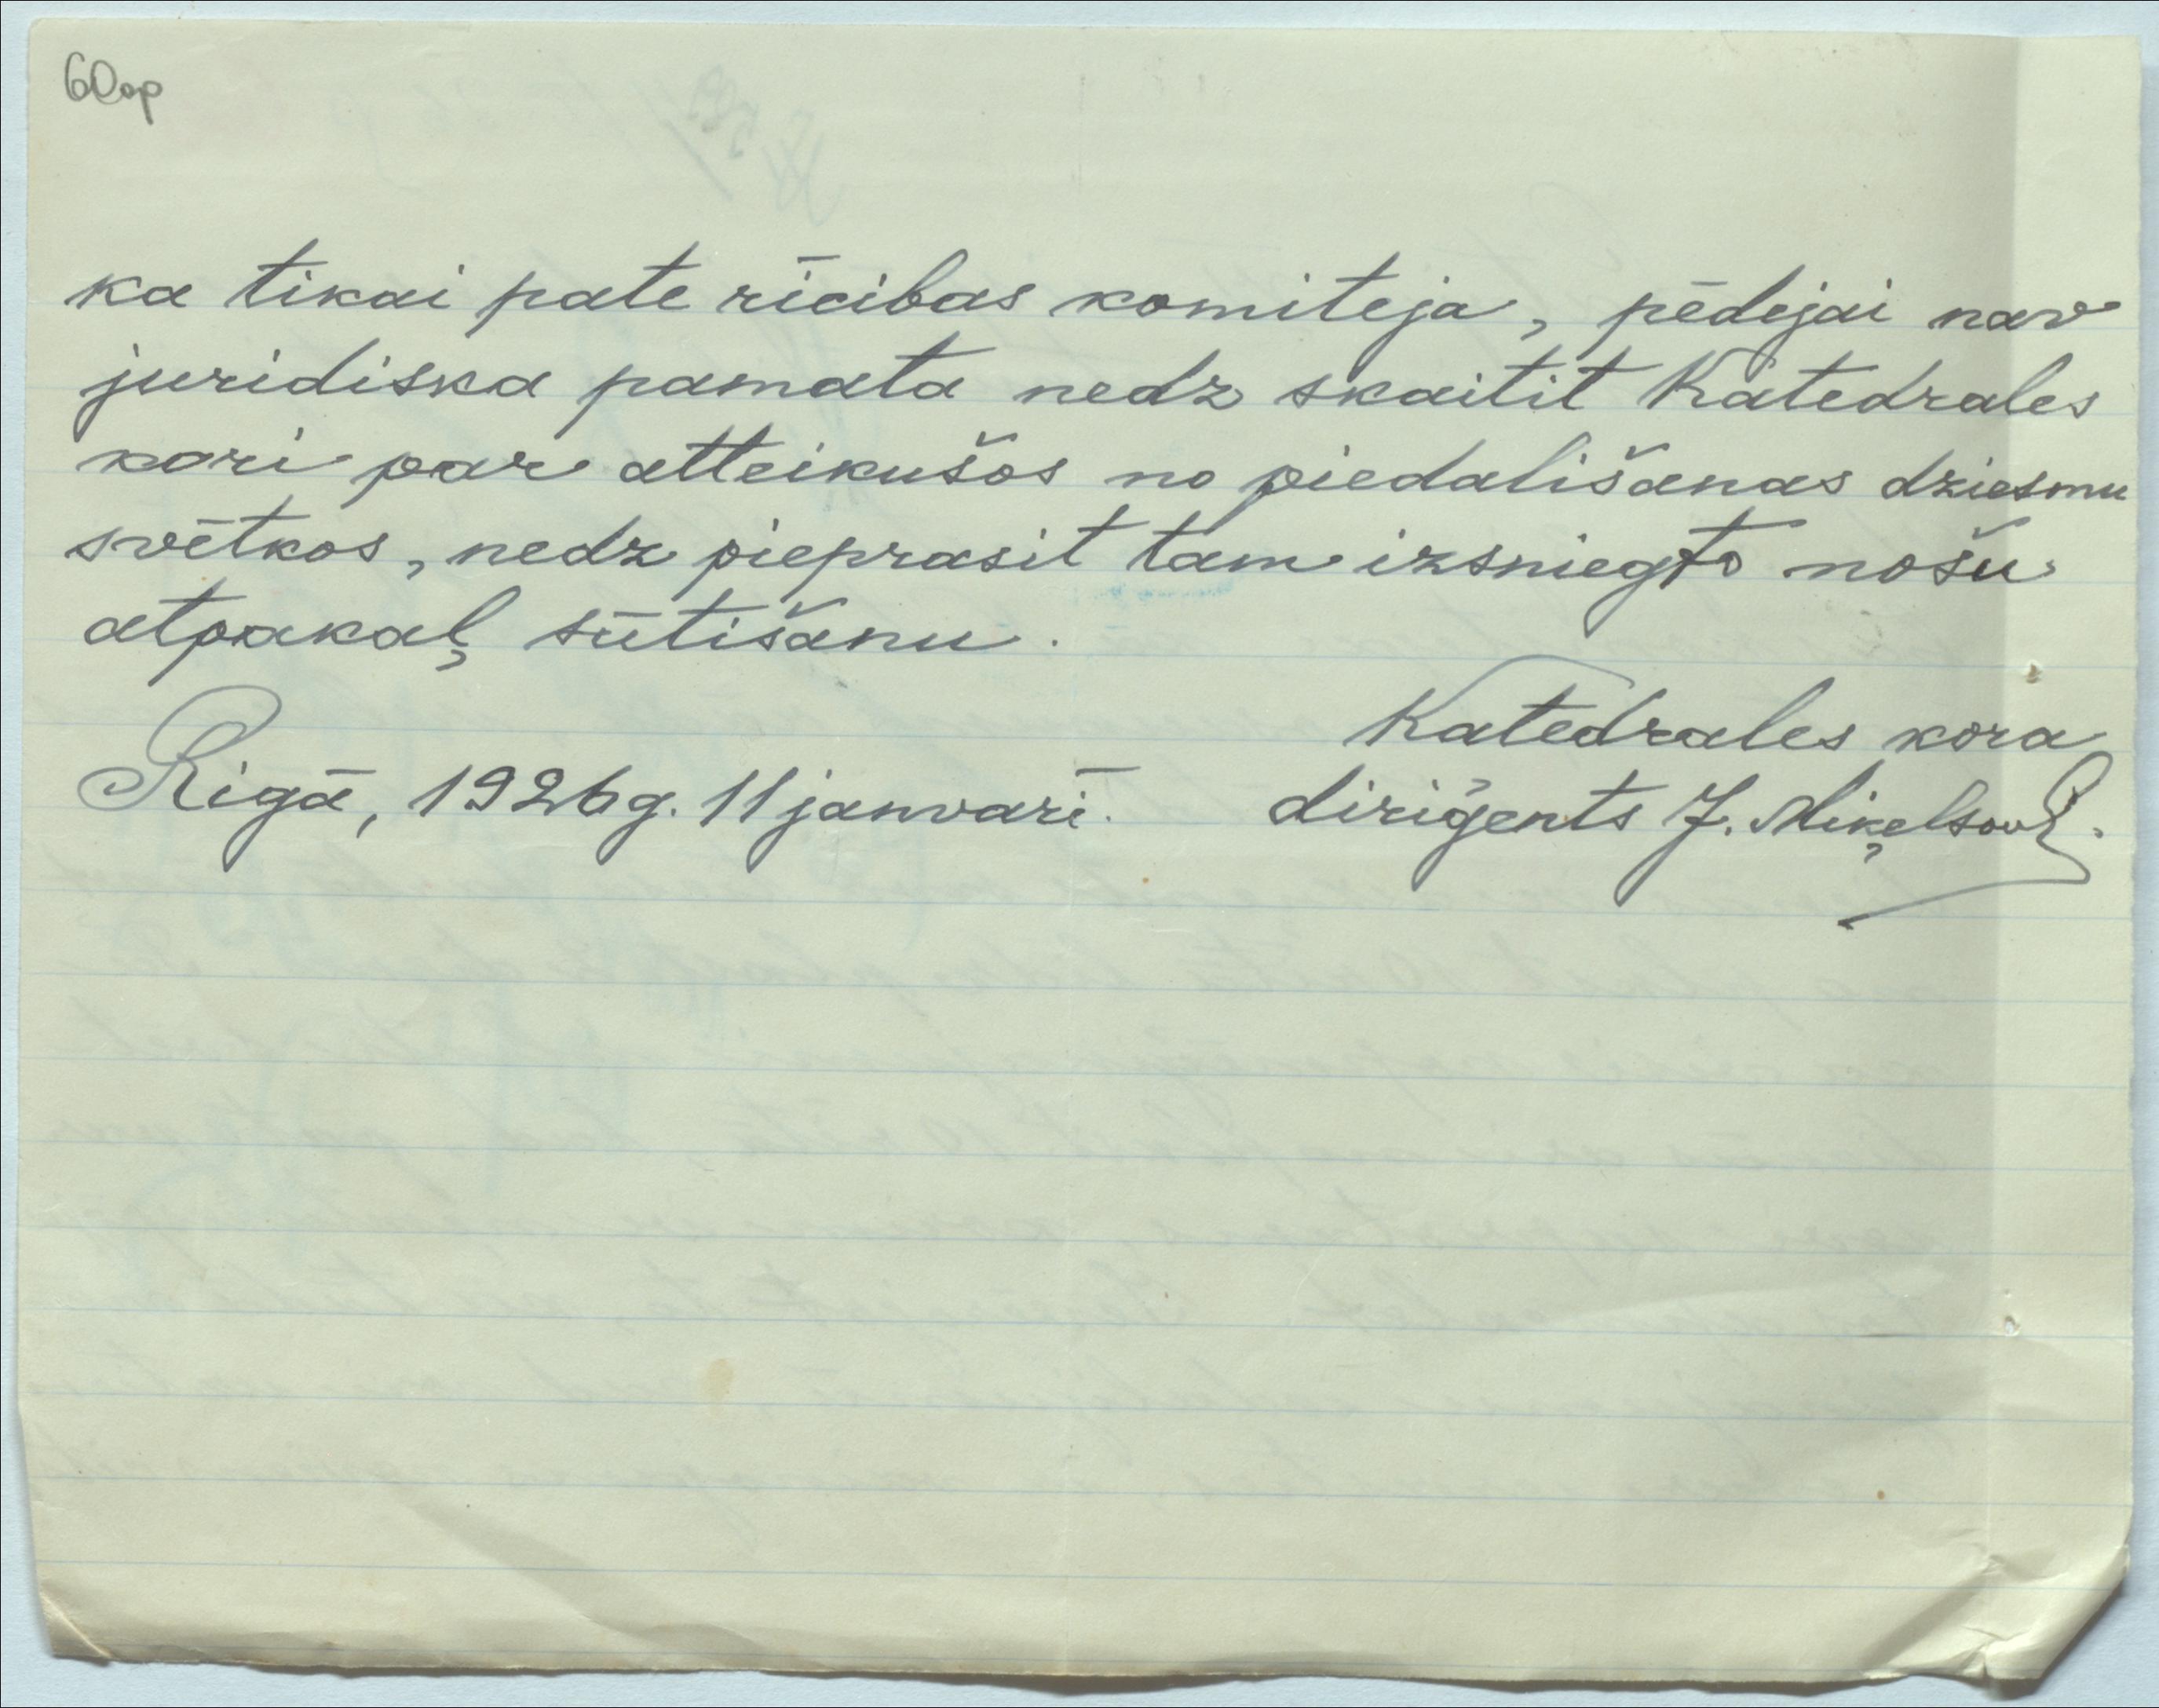 60op
ka tikai pate rīcibas komiteja, pēdejai nav
juridiska pamata nedz skaitit Katedrales
kori par atteikušos no piedališanas dziesmu
svētkos, nedz pieprasit tam izsniegto nošu
atpakaļ sūtišanu.
Katedrales kora
Rigā, 1926g. 11 janvarī. diriģents J. Miķelsons.